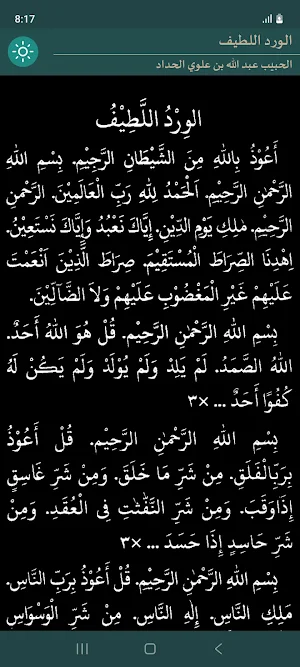 8:17
الورد اللطيف
الحبيب عبد الله بن علوي الحداد
الوِرْدُ اللَّطِيْفُ
أَعُوْذُ بِاللهِ مِنَ الشَّيْطَانِ الرَّجِيْمِ. بِسْمِ اللهِ
الرَّحْمٰنِ الرَّحِيْمِ. اَلْحَمْدُ لِلّٰهِ رَبِّ الْعَالَمِيْنَ. الرَّحْمٰنِ
الرَّحِيْمِ. مٰلِكِ يَوْمِ الدِّيْنِ. إِيَّاكَ نَعْبُدُ وَإِيَّاكَ نَسْتَعِيْنُ.
اِهْدِنَا الصِّرَاطَ الْمُسْتَقِيْمَ. صِرَاطَ الَّذِيْنَ اَنْعَمْتَ
عَلَيْهِمْ غَيْرِ الْمَغْضُوْبِ عَلَيْهِمْ وَلَا الضَّآلِّيْنَ.
بِسْمِ اللهِ الرَّحْمٰنِ الرَّحِيْمِ. قُلْ هُوَ اللهُ أَحَدٌ.
اللهُ الصَّمَدُ. لَمْ يَلِدْ وَلَمْ يُوْلَدْ وَلَمْ يَكُنْ لَهُ
كُفُوًا أَحَدٌ ... ×٣
بِسْمِ اللهِ الرَّحْمٰنِ الرَّحِيْمِ. قُلْ أَعُوْذُ
بِرَبِّالْفَلَقِ. مِنْ شَرِّ مَا خَلَقَ. وَمِنْ شَرِّ غَاسِقٍ
إِذَاوَقَبَ. وَمِنْ شَرِّ النَّفّٰثٰتِ فِى الْعُقَدِ. وَمِنْ
شَرِّ حَاسِدٍ إِذَا حَسَدَ ... ×٣
بِسْمِ اللهِ الرَّحْمٰنِ الرَّحِيْمِ. قُلْ أَعُوْذُ بِرَبِّ النَّاسِ.
مَلِكِ النَّاسِ. إِلٰهِ النَّاسِ. مِنْ شَرِّ الْوَسْوَاسِ